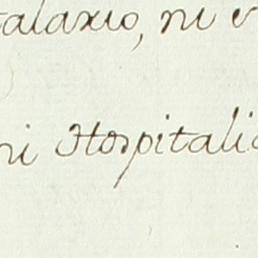 talaxio, ni e
ni Hospitalia